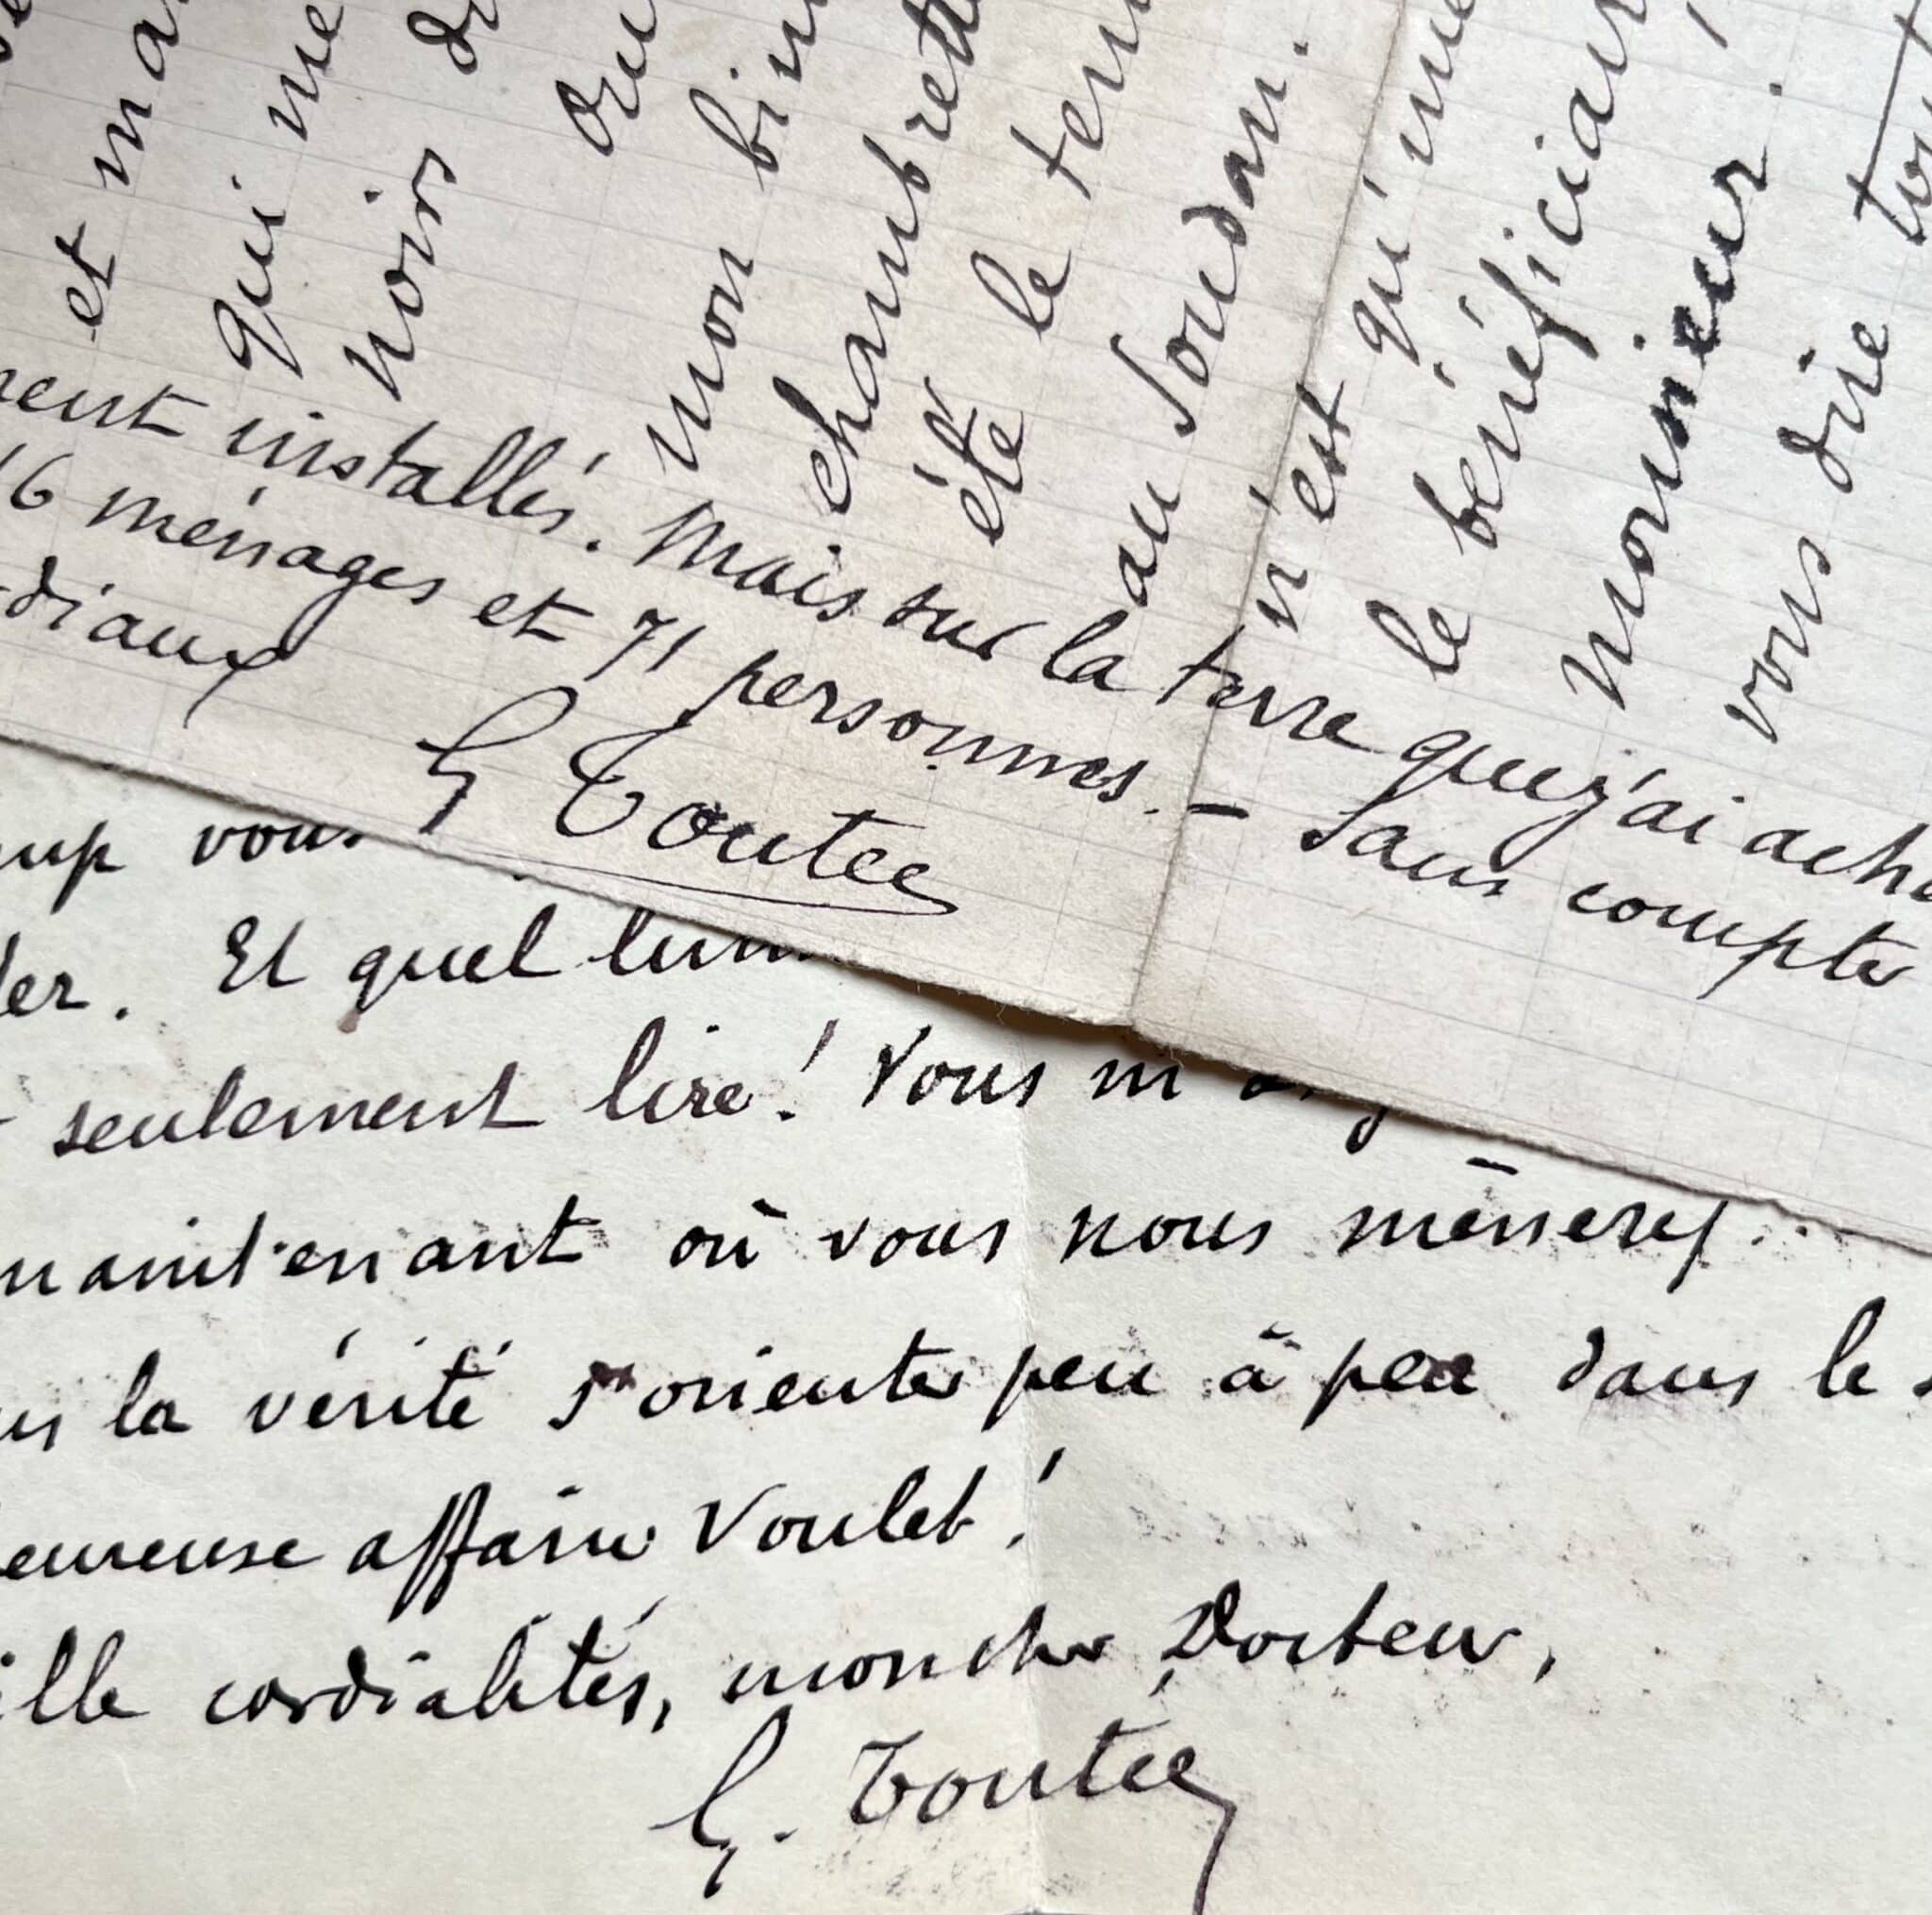 et ma
qui me
noirs
mon bin
chambrette
été le tem
au Soudan.
n'est qu'une
le bénéficiair
monsieur.
vous dire tou
ment installés. Mais sur la terre que j'ai ache
16 ménages et 71 personnes. — Sans compter
diaux
G Toutée
vous
er. Et quel
seulement lire! Vous m'
maintenant où vous nous mènerez..
la vérité s'oriente peu à peu dans le
eureuse affaire Voulet!
ille cordialités, mon cher Docteur,
G. Toutée